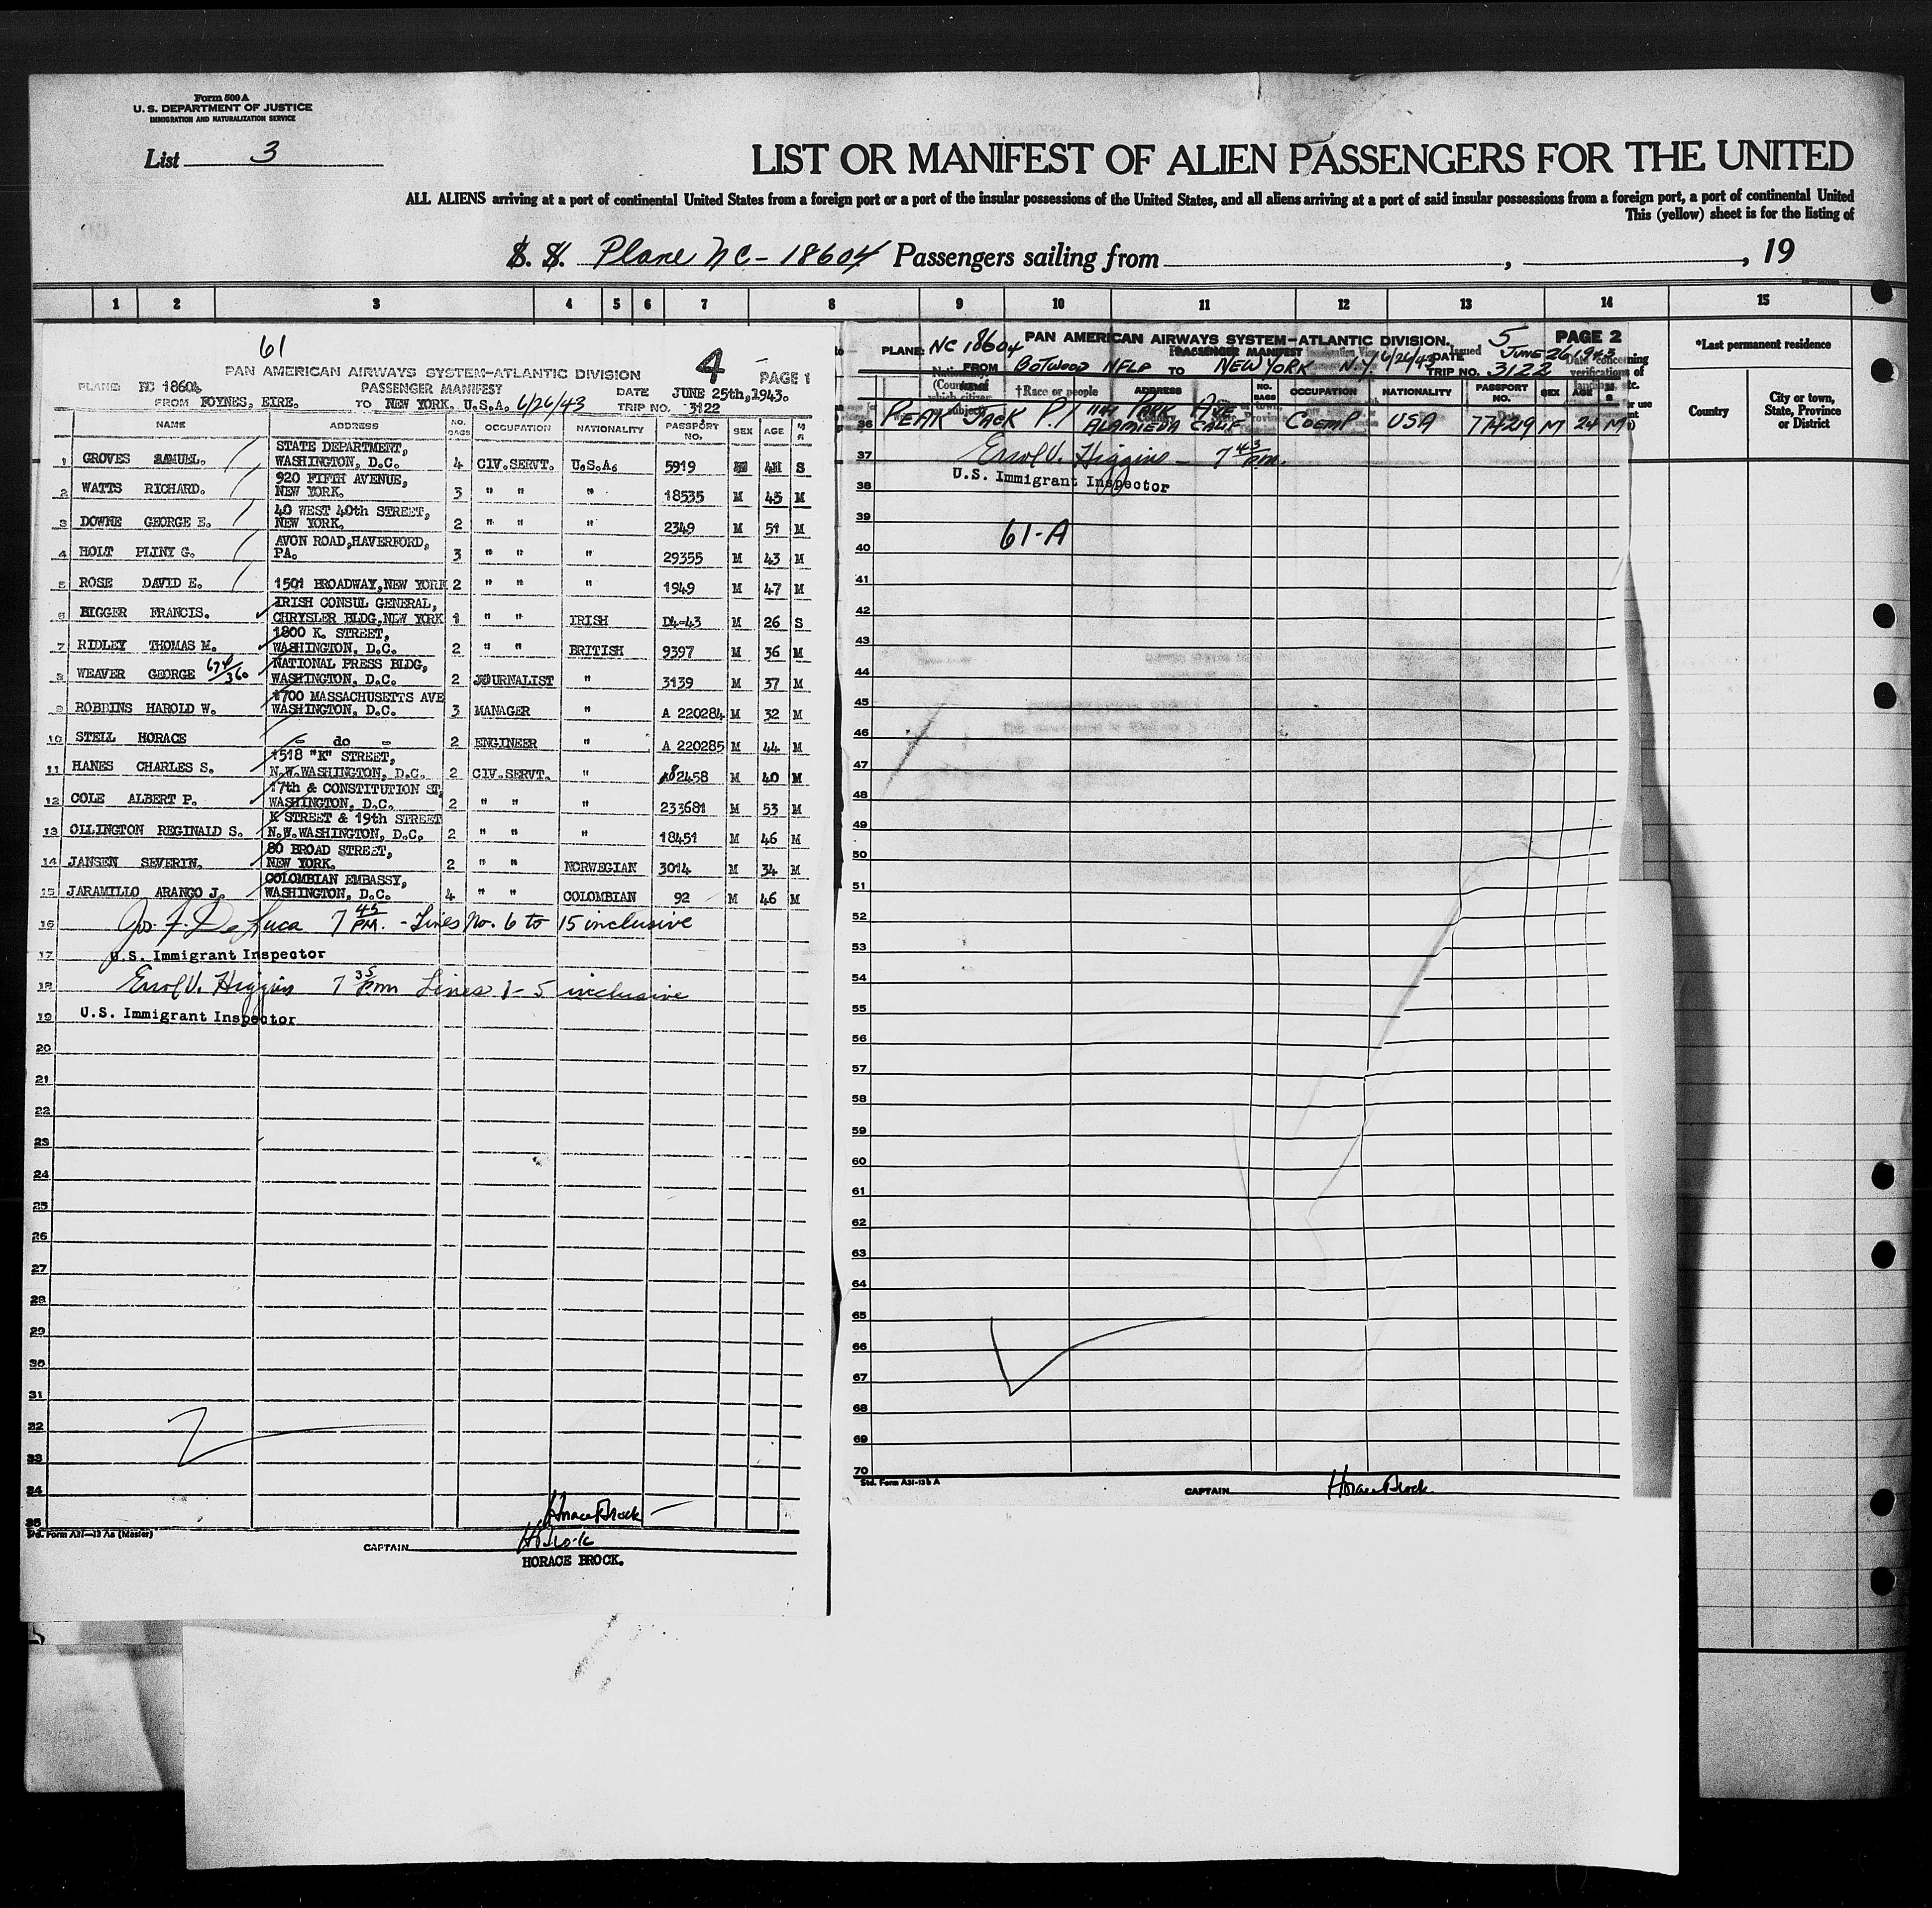 Form 500 A
U. S. DEPARTMENT OF JUSTICE
IMMIGRATION AND NATURALIZATION SERVICE
List 3
LIST OR MANIFEST OF ALIEN PASSENGERS FOR THE UNITED
ALL ALIENS arriving at a port of continental United States from a foreign port or a port of the insular possessions of the United States, and all aliens arriving at a port of said insular possessions from a foreign port, a port of continental United
This (yellow) sheet is for the listing of
S. S. Plane NC-18604 Passengers sailing from , , 19
1 2 3 4 5 6 7 8 9 10 11 12 13 14 15
61
4
PAN AMERICAN AIRWAYS SYSTEM-ATLANTIC DIVISION PAGE 1
PLANE: NC 18604 PASSENGER MANIFEST DATE JUNE 25th, 1943.
FROM FOYNES, EIRE. TO NEW YORK. U.S.A. 6/26/43 TRIP NO. 3122
NAME ADDRESS NO. BAGS OCCUPATION NATIONALITY PASSPORT NO. SEX AGE M S
1 GROVES SAMUEL. STATE DEPARTMENT, WASHINGTON, D.C. 4 CIV. SERVT. U.S.A. 5919 41 S
2 WATTS RICHARD. 920 FIFTH AVENUE, NEW YORK. 3 " " " 18535 M 45 M
3 DOWNE GEORGE E. 40 WEST 40th STREET, NEW YORK. 2 " " " 2349 M 51 M
4 HOLT PLINY G. AVON ROAD, HAVERFORD, PA. 3 " " " 29355 M 43 M
5 ROSE DAVID E. 1501 BROADWAY, NEW YORK 2 " " " 1949 M 47 M
6 BIGGER FRANCIS. IRISH CONSUL GENERAL, CHRYSLER BLDG, NEW YORK 1 " " IRISH D4-43 M 26 S
7 RIDLEY THOMAS M. 1800 K. STREET, WASHINGTON, D.C. 2 " " BRITISH 9397 M 36 M
8 WEAVER GEORGE NATIONAL PRESS BLDG, WASHINGTON, D.C. 2 JOURNALIST " 3139 M 37 M
9 ROBBINS HAROLD W. 1700 MASSACHUSETTS AVE WASHINGTON, D.C. 3 MANAGER " A 220284 M 32 M
10 STELL HORACE - do - 2 ENGINEER " A 220285 M 44 M
11 HANES CHARLES S. 1518 "K" STREET, N.W. WASHINGTON, D.C. 2 CIV. SERVT. " 82458 M 40 M
12 COLE ALBERT P. 17th & CONSTITUTION ST, WASHINGTON, D.C. 2 " " " 233681 M 53 M
13 OLLINGTON REGINALD S. K STREET & 19th STREET N.W. WASHINGTON, D.C. 2 " " " 18451 M 46 M
14 JANSEN SEVERIN. 80 BROAD STREET, NEW YORK. 2 " " NORWEGIAN 3014 M 34 M
15 JARAMILLO ARANGO J. COLOMBIAN EMBASSY, WASHINGTON, D.C. 4 " " COLOMBIAN 92 M 46 M
16 Jos. F. De Luca 7 45 PM. - Lines No. 6 to 15 inclusive
17 U.S. Immigrant Inspector
18 Errol V. Higgins 7 35 pm Lines 1-5 inclusive
19 U.S. Immigrant Inspector
20
21
22
23
24
25
26
27
28
29
30
31
32
33
34
35
Horace Brock
Std. Form A31-13 Aa (Master)
CAPTAIN HBrock
HORACE BROCK.
PAN AMERICAN AIRWAYS SYSTEM-ATLANTIC DIVISION. 5 PAGE 2
PLANE: NC 18604 PASSENGER MANIFEST DATE JUNE 26 1943
FROM BOTWOOD NFLD TO NEW YORK N.Y. 6/26/43 TRIP NO. 3122
†Race or people ADDRESS NO. BAGS OCCUPATION NATIONALITY PASSPORT NO. SEX AGE
36 PEAK JACK P. 1 1141 PARK AVE ALAMEDA CALIF COEMP USA 77429 M 24 M
37 Errol V. Higgins - 7 43 pm.
38 U.S. Immigrant Inspector
39
61-A
40
41
42
43
44
45
46
47
48
49
50
51
52
53
54
55
56
57
58
59
60
61
62
63
64
65
66
67
68
69
70
Std. Form A31-13b A
CAPTAIN Horace Brock
*Last permanent residence
Country City or town, State, Province or District